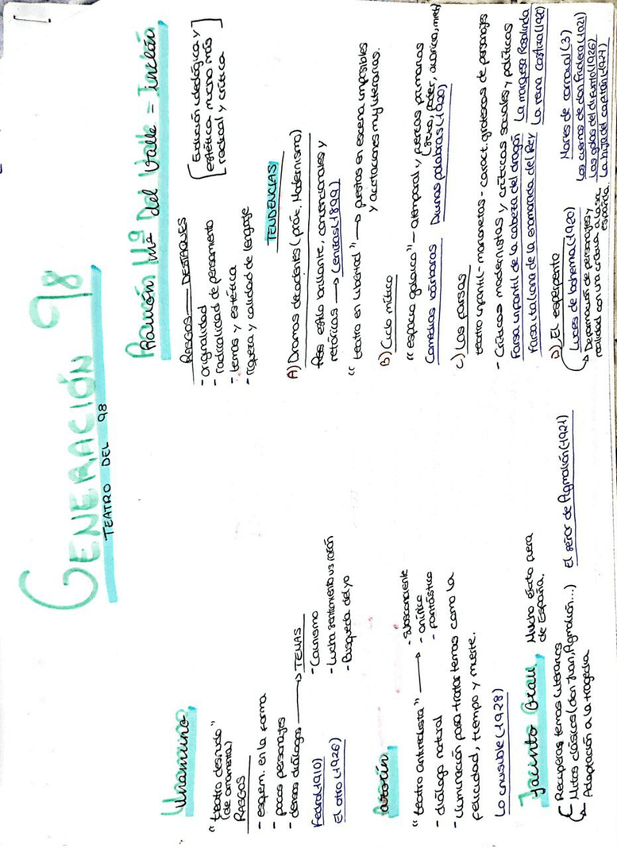 GENERACIÓN 98
TEATRO DEL 98
Unamuno
"teatro desnudo"
(de ornamento)
RASGOS
- esquem. en la forma
- pocos personajes
- densos diálogos → TEMAS
- Cainismo
- Lucha sentimiento vs razón
- Búsqueda del yo
Fedra(1910)
El otro (1926)
Azorín
"teatro antirrealista" → - Subsconciente
- onírico
- fantástico
- diálogo natural
- iluminación para tratar temas como la
felicidad, tiempo y muerte.
Lo invisible (1928)
Jacinto Grau
Mucho éxito fuera
de España.
Recupera temas literarios
Mitos clásicos (don Juan, Pigmalión...) El señor de Pigmalión (1921)
Adaptación a la tragedia
Ramón Mª Del Valle - Inclán
RASGOS DESTAQUES
- originalidad
- radicalidad de pensamiento
- temas y estética
- riqueza y calidad de lenguaje
Evolución ideológica y
estética mucho más
radical y crítica
TENDENCIAS
A) Dramas decadentes (próx. Modernismo)
estilo brillante, convencionales y
retóricas → Cenizas (1899)
"teatro en libertad" → puestas en escena imposibles
y acotaciones muy literarias.
B) Ciclo mítico
"espacio galaico" - atemporal y fuerzas primarias
(sexo, poder, avaricia,
Comedias bárbaras Divinas palabras (1920)
C) Las farsas
teatro infantil - marionetas - caract. grotescas de personajes
- Críticas modernistas y artísticas sociales y políticas
Farsa infantil de la cabeza del dragón La marquesa Rosalinda
Farsa italiana de la enamorada del Rey La reina castiza (1920)
D) El esperpento
Luces de bohemia (1920)
Deformación de personajes y
realidad con una crítica a la soc.
española.
Martes de carnaval (3)
Los cuernos de don Friolera (1921)
Las galas del difunto (1926)
La hija del capitán (1927)